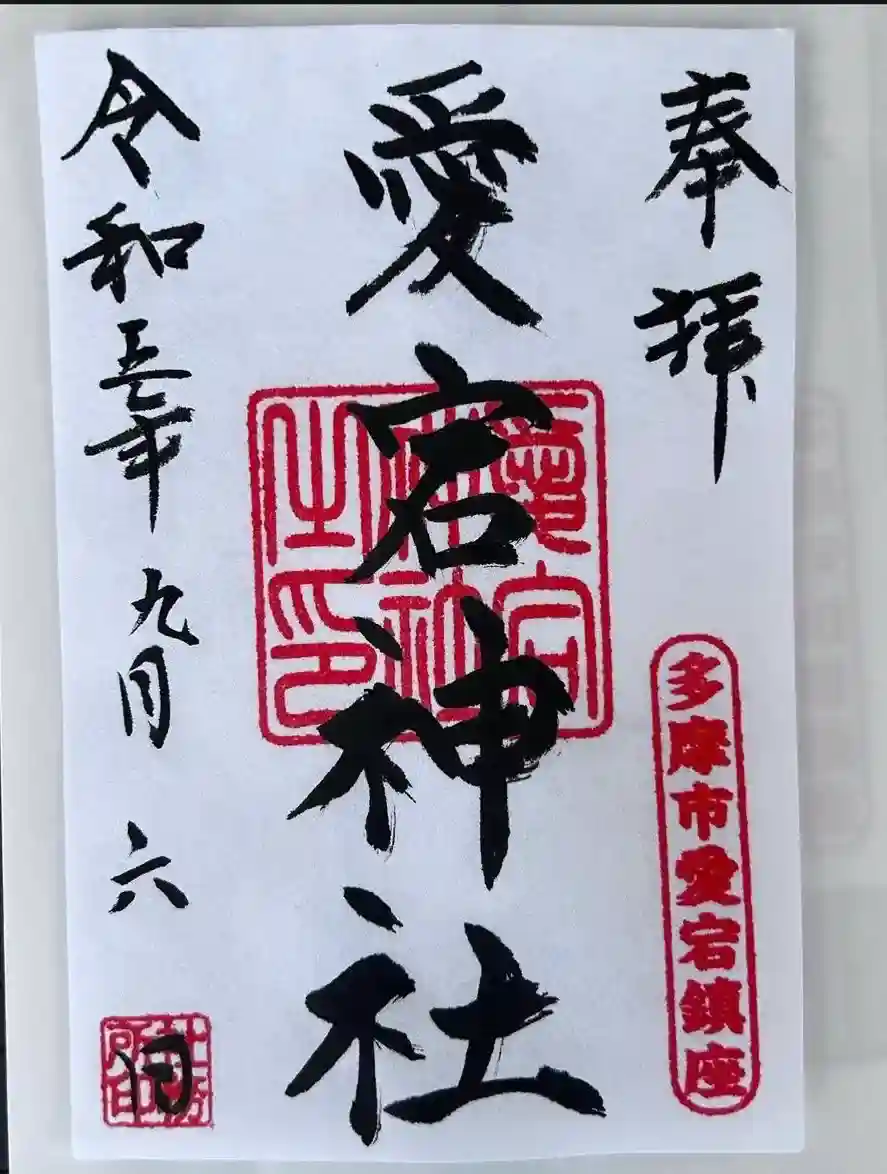 奉拝
多摩市愛宕鎮座
愛宕神社
愛宕
神社
之印
令和五年九月六日
社務
所印